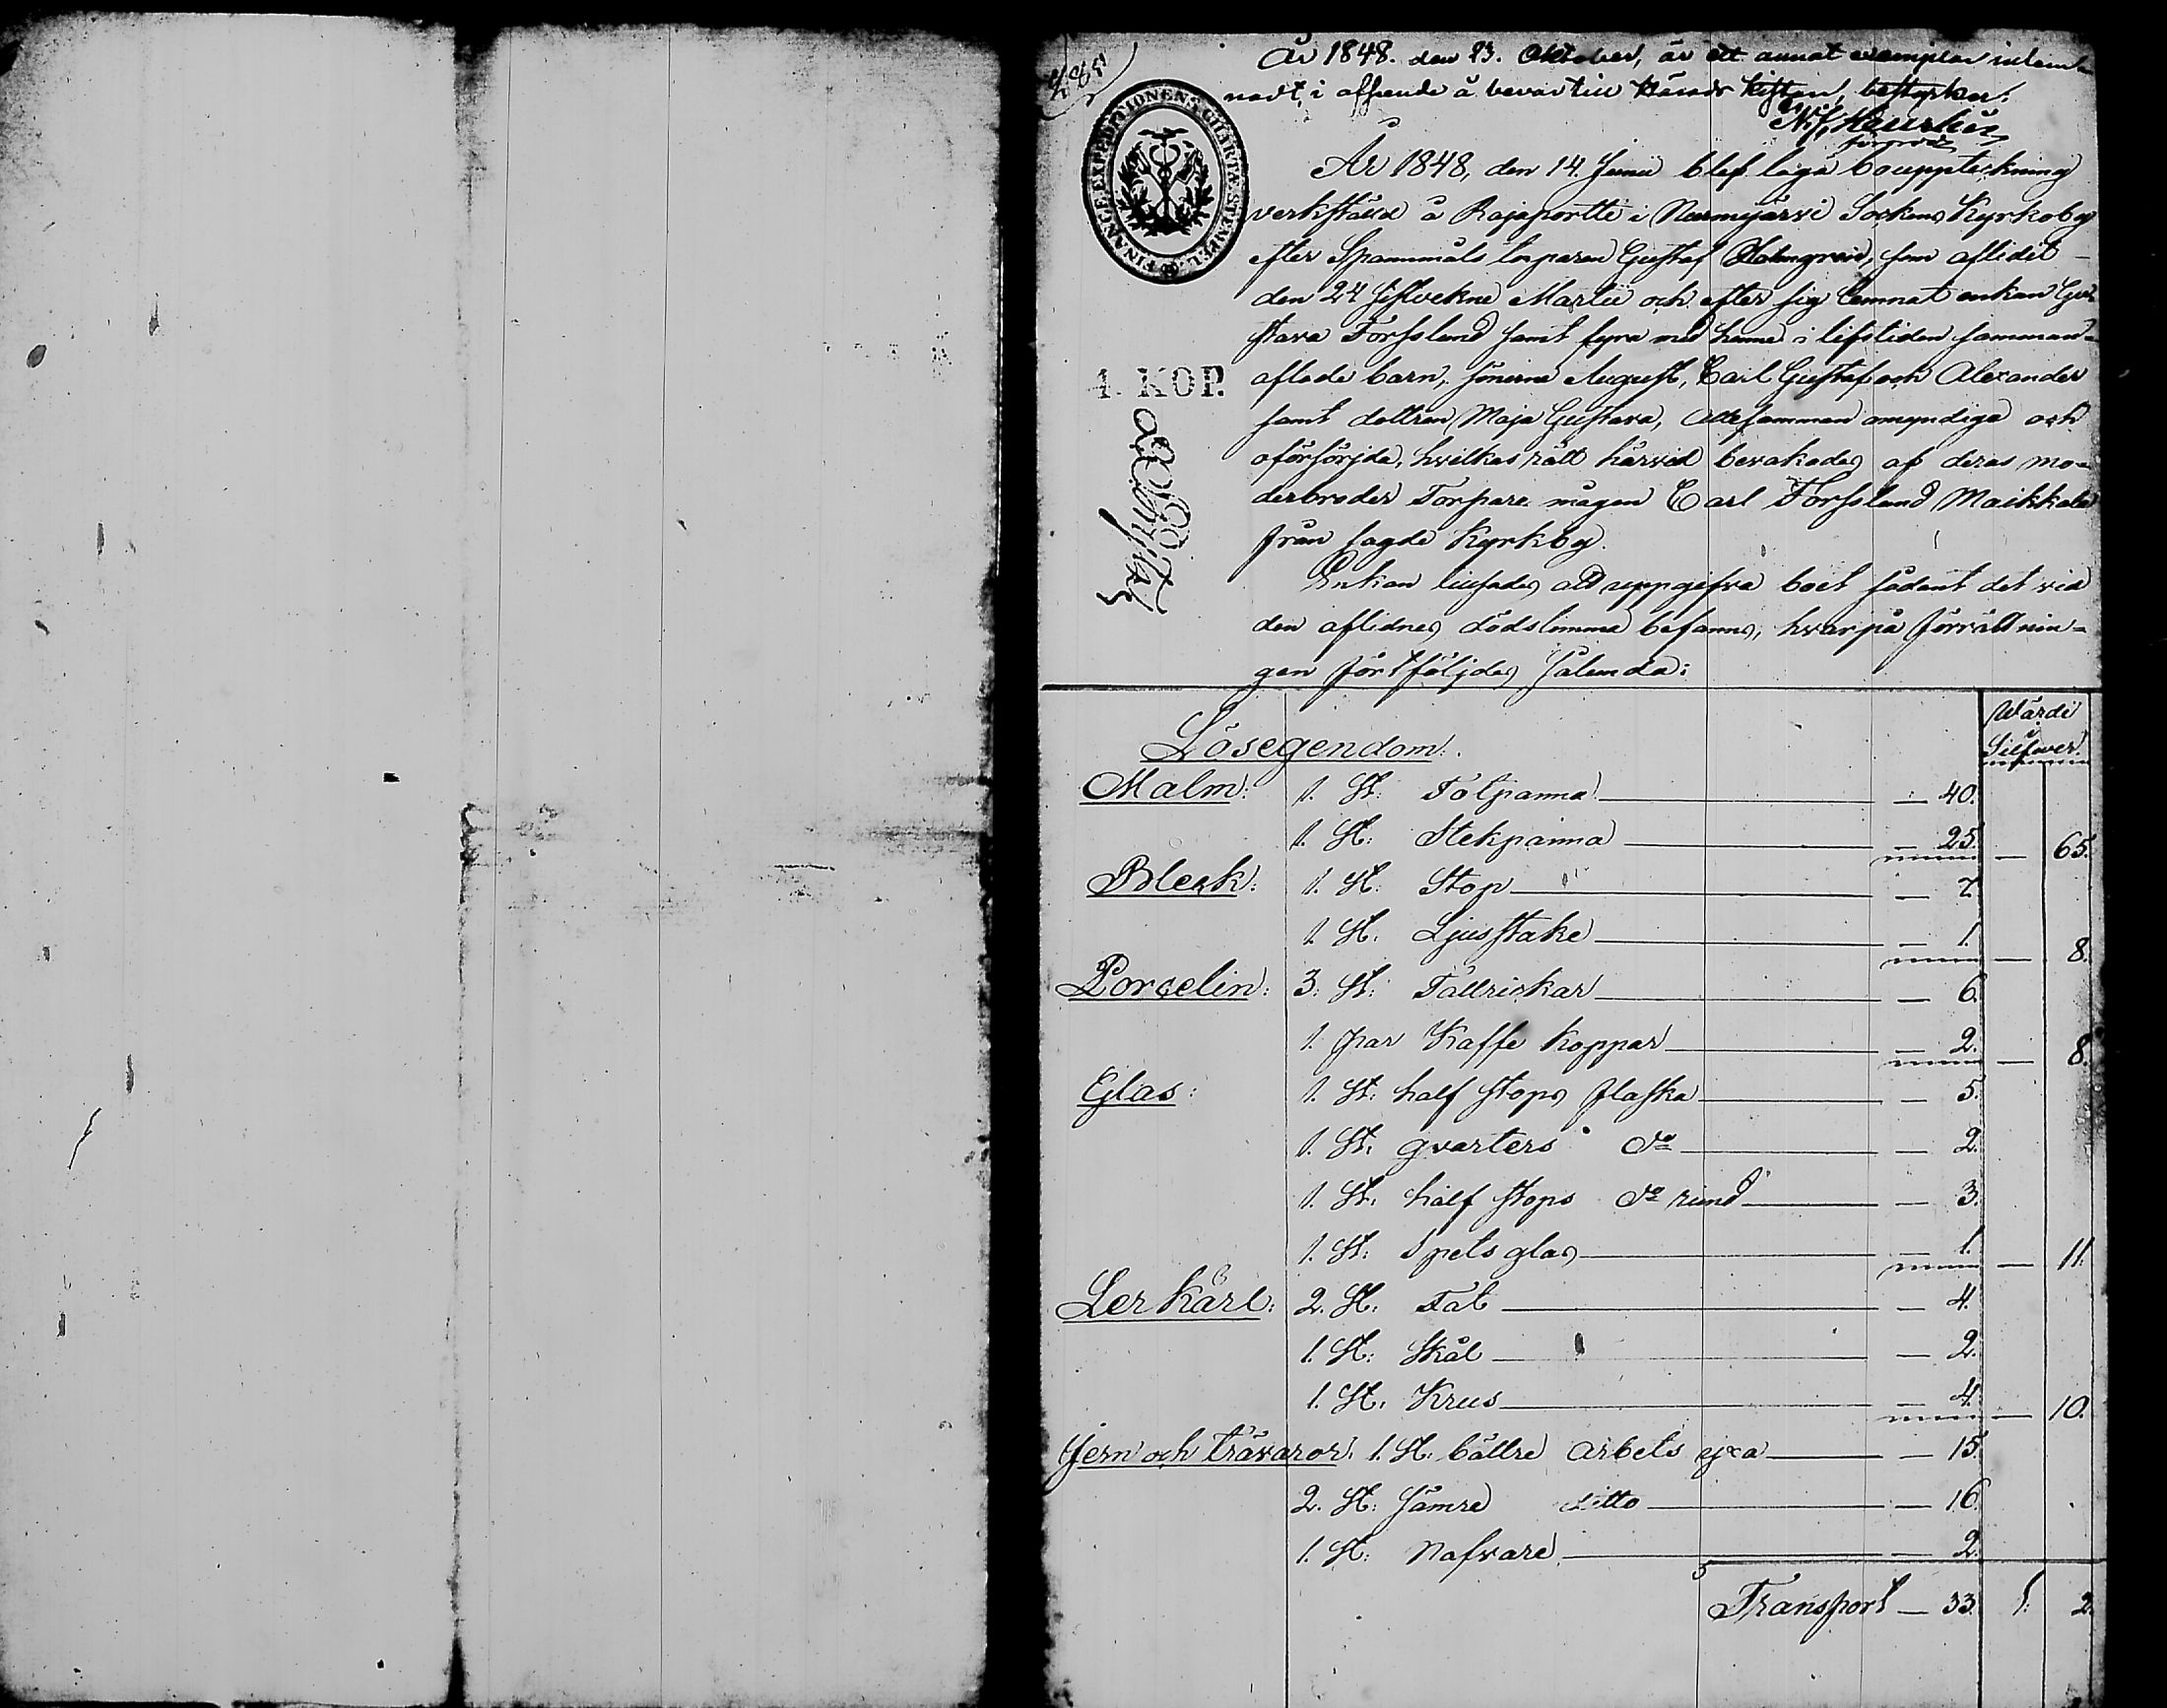 År 1848. den 23. Oktober, är ett annat exemplar inlem-
nadt, i afseende å bevar till Härads kistan, bestyrker:
FINANCE EXPEDITIONENS CHARTÆ STEMPEL.
År 1848, den 14. Junii blef laga bouppteckning
verkställd å Rajaportti i Nurmijärvi Sockens Kyrkoby
efter Spannmåls torparen Gustaf Holmqvist, som aflidit
den 24 sistvekne Martii och efter sig lemnat enkan Gu-
stava Forsslund samt fyra med henne i lifstiden samman-
aflade barn, sönerne August, Carl Gustaf och Alexander
1. KOP.
samt dottren Maja Gustava, allesamman omyndiga och
oförsörjda, hvilkas rätt härvid bevakades af deras mo-
derbroder Torpare mågen Carl Forsslund Maikkala
från sagde Kyrkby.
Enkan tillsades att uppgifva boet sådant det vid
den aflidnes dödstimma befanns, hvarpå förrättnin-
gen fortföljdes sålunda:
Wärde
Silfwer.
Lösegendom:
Malm: 1. St: Fotpanna — 40.
1. St: Stekpanna — 25. — 65.
Bleck: 1. St: Stop — 7
1. St. Ljusstake — 1. — 8.
Porcelin: 3. St: Tallrickar — 6.
1. par Kaffe koppar — 2. — 8.
Glas: 1. St: half stops flaska — 5.
1. St. qvarters do — 2.
1. St. half stops do rund — 3.
1. St: Spetsglas — 1. — 11.
Ler kärl: 2. St: Fat — 4.
1. St: Skål — 2.
1. St. Krus — 4. — 10.
Jern och trävaror: 1. St: bättre arbets yxa — 15.
2. St: sämre ditto — 16.
1. St: Nafvare — 2.
Transport — 33. 1: 2.